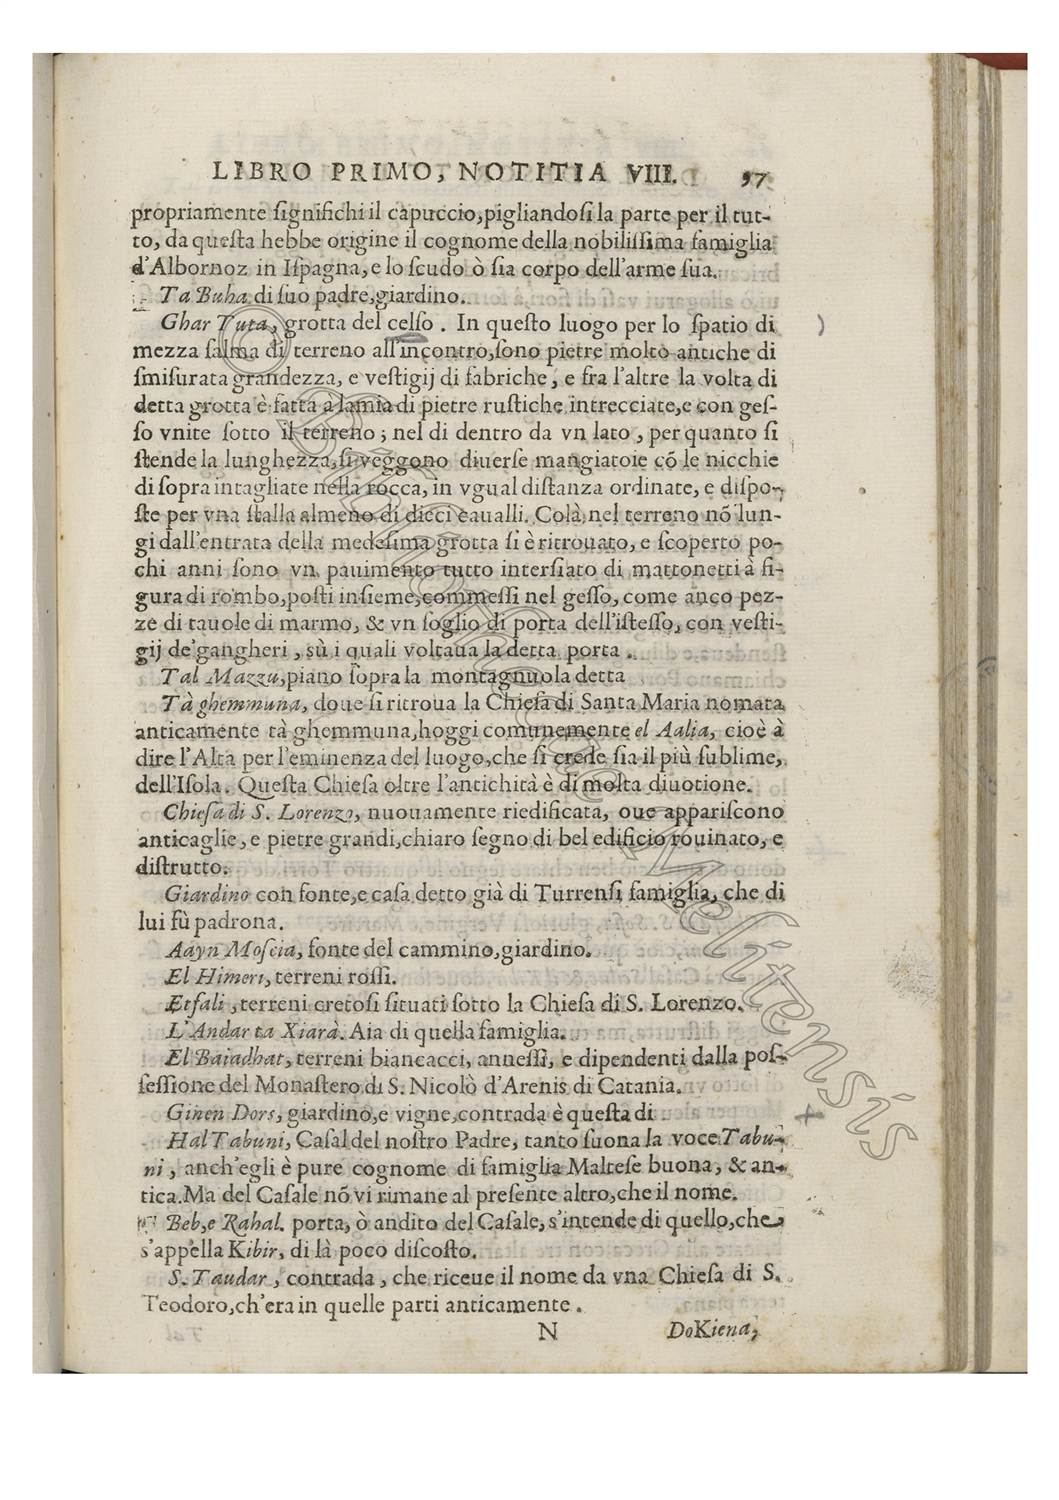 LIBRO PRIMO, NOTITIA VIII. 97
propriamente ſignifichi il capuccio, pigliandoſi la parte per il tut-
to, da queſta hebbe origine il cognome della nobiliſſima famiglia
d'Albornoz in Iſpagna, e lo ſcudo ò ſia corpo dell'arme ſua.
Ta Buha di ſuo padre, giardino.
Ghar Tuta, grotta del celſo. In queſto luogo per lo ſpatio di
mezza ſalma di terreno all'incontro, ſono pietre molto antiche di
ſmiſurata grandezza, e veſtigij di fabriche, e fra l'altre la volta di
detta grotta è fatta à lamia di pietre ruſtiche intrecciate, e con geſ-
ſo vnite ſotto il terreno; nel di dentro da vn lato, per quanto ſi
ſtende la lunghezza, ſi veggono diuerſe mangiatoie cõ le nicchie
di ſopra intagliate nella rocca, in vgual diſtanza ordinate, e diſpo-
ſte per vna ſtalla almeno di dieci caualli. Colà nel terreno nõ lun-
gi dall'entrata della medeſima grotta ſi è ritrouato, e ſcoperto po-
chi anni ſono vn pauimento tutto interſiato di mattonetti à fi-
gura di rombo, poſti inſieme, commeſſi nel geſſo, come anco pez-
ze di tauole di marmo, & vn ſoglio di porta dell'iſteſſo, con veſti-
gij de'gangheri, sù i quali voltaua la detta porta.
Tal Mazzu, piano ſopra la montagnuola detta
Tà ghemmuna, doue ſi ritroua la Chieſa di Santa Maria nomata
anticamente tà ghemmuna, hoggi comunemente el Aalia, cioè à
dire l'Alta per l'eminenza del luogo, che ſi crede ſia il più ſublime,
dell'Iſola. Queſta Chieſa oltre l'antichità è di molta diuotione.
Chieſa di S. Lorenzo, nuouamente riedificata, oue appariſcono
anticaglie, e pietre grandi, chiaro ſegno di bel edificio rouinato, e
diſtrutto.
Giardino con fonte, e caſa detto già di Turrenſi famiglia, che di
lui fù padrona.
Aayn Moſcia, fonte del cammino, giardino.
El Himeri, terreni roſſi.
Etfali, terreni cretoſi ſituati ſotto la Chieſa di S. Lorenzo.
L'Andar ta Xiarà. Aia di quella famiglia.
El Baiadhat, terreni biancacci, anneſſi, e dipendenti dalla poſ-
ſeſſione del Monaſtero di S. Nicolò d'Arenis di Catania.
Ginen Dors, giardino, e vigne, contrada è queſta di
Hal Tabuni, Caſal del noſtro Padre, tanto ſuona la voce Tabu-
ni, anch'egli è pure cognome di famiglia Malteſe buona, & an-
tica. Ma del Caſale nõ vi rimane al preſente altro, che il nome.
Beb, e Rahal. porta, ò andito del Caſale, s'intende di quello, che
s'appella Kibir, di là poco diſcoſto.
S. Taudar, contrada, che riceue il nome da vna Chieſa di S.
Teodoro, ch'era in quelle parti anticamente.
N DoKiena,
© Bibliotheca Melitensis